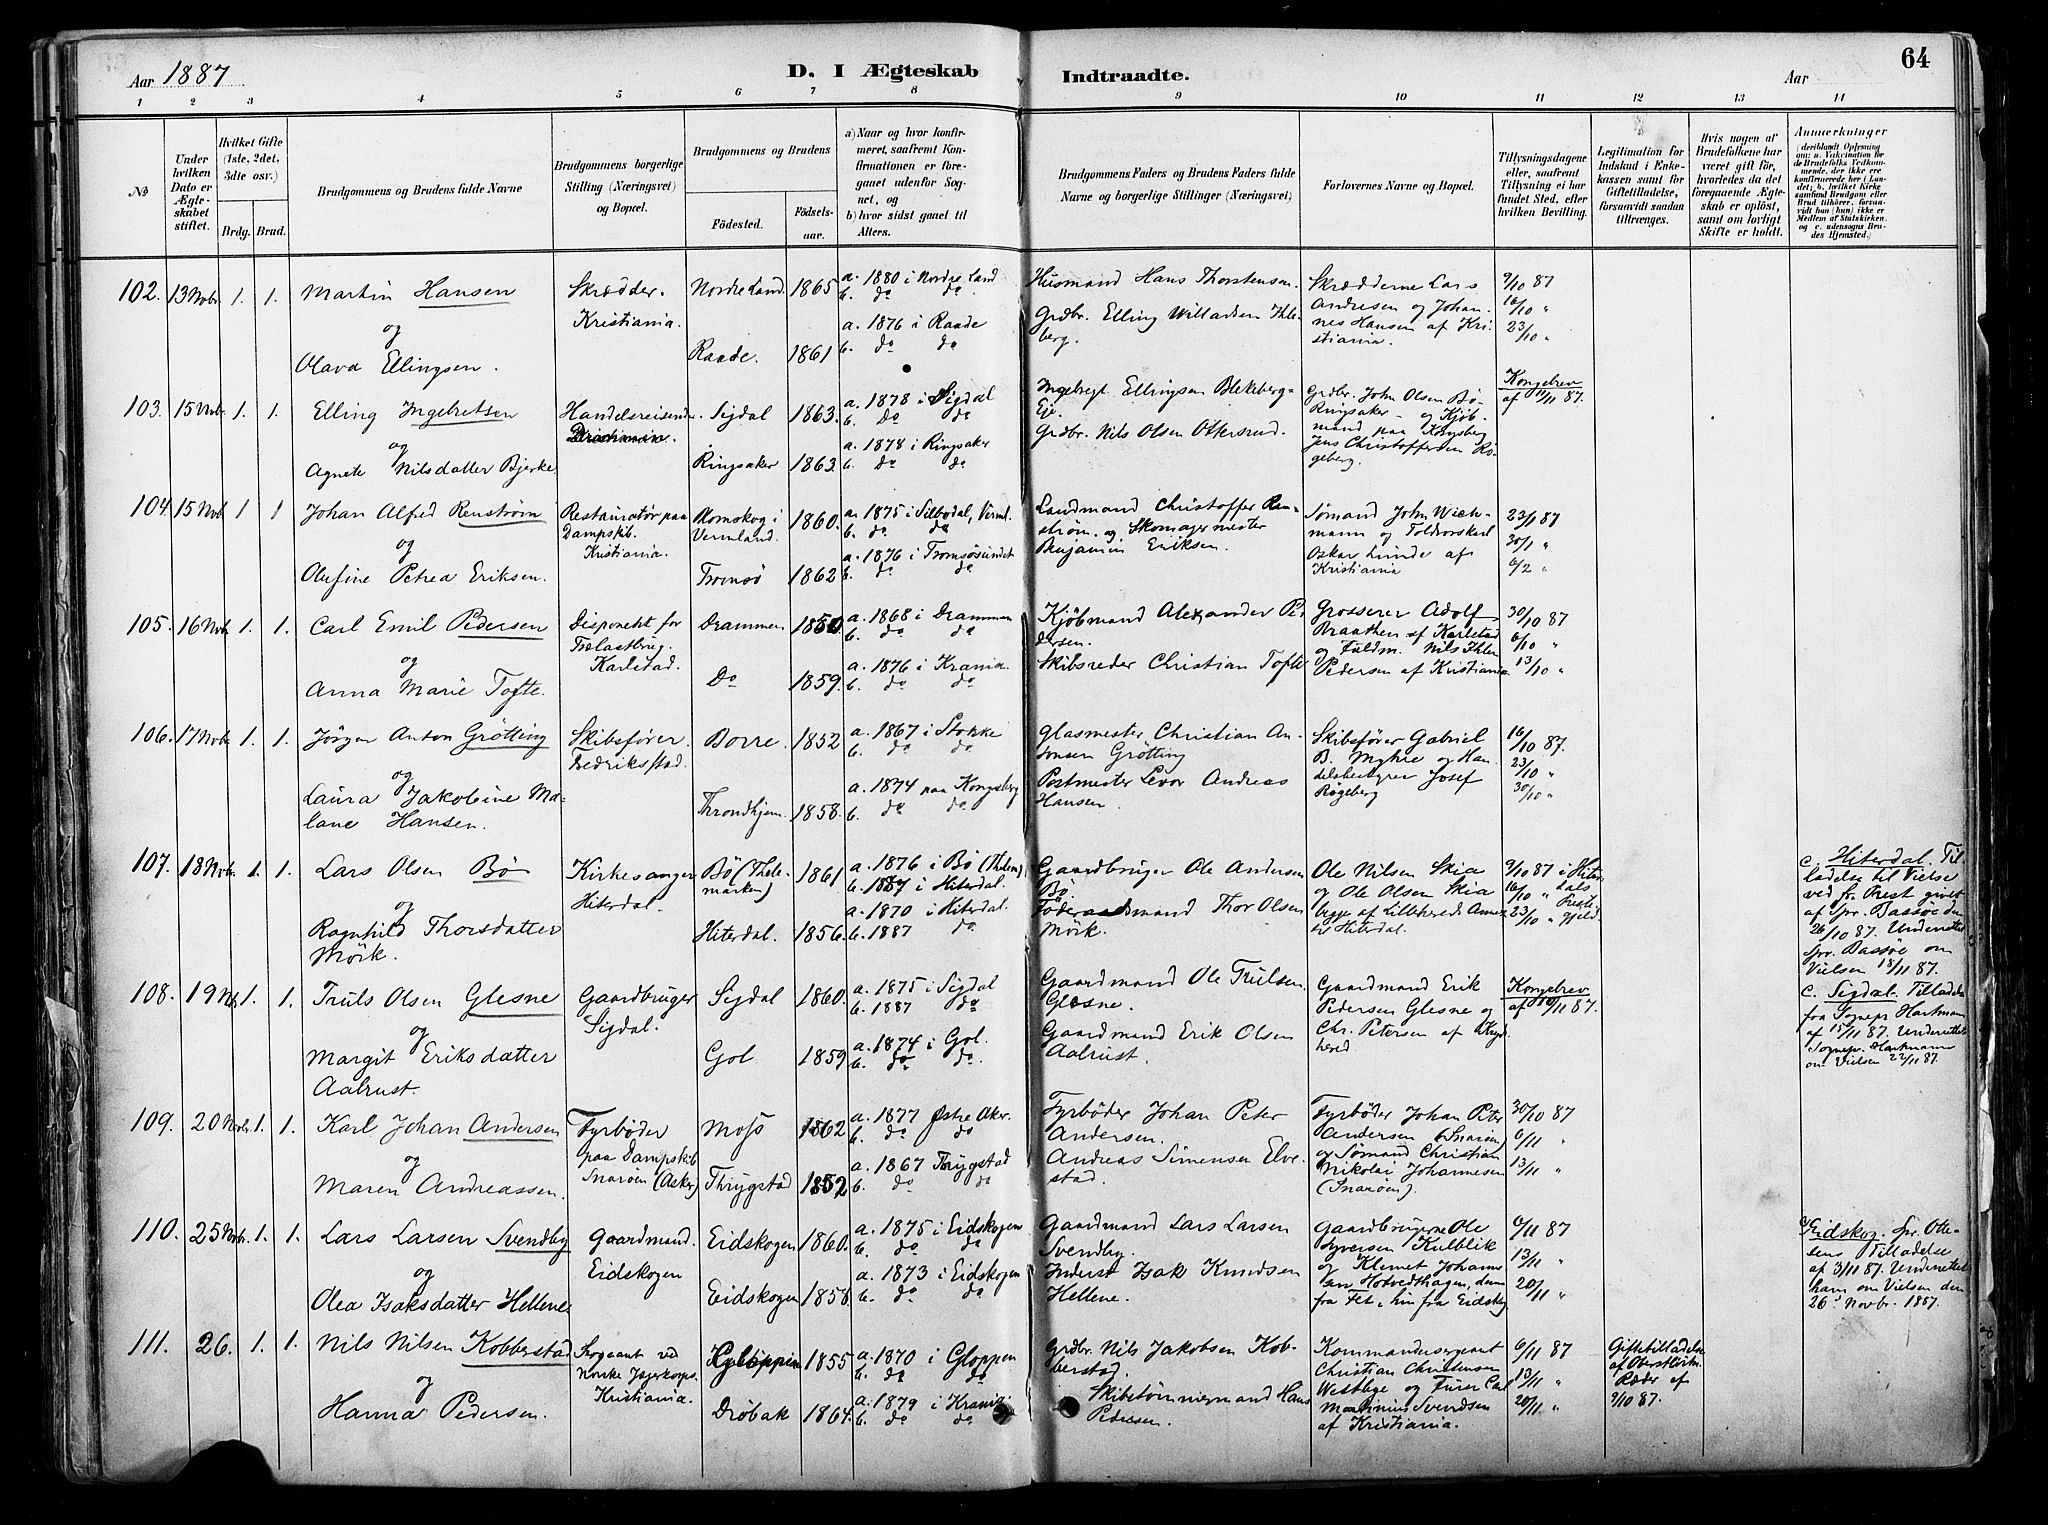 Aar 1887
D. I Ægteskab Indtraadte.
Aar
64
1 2 3 4 5 6 7 8 9 10 11 12 13 14
No
Under hvilken Dato er Ægteskabet stiftet.
Hvilket Gifte (1ste, 2det, 3dte osv.)
Brdg. Brud.
Brudgommens og Brudens fulde Navne
Brudgommens borgerlige Stilling (Næringsvei) og Bopæl.
Brudgommens og Brudens
Fødested.
Fødselsaar.
a) Naar og hvor konfirmeret, saafremt Konfirmationen er foregaaet udenfor Sognet, og
b) hvor sidst gaaet til Alters.
Brudgommens Faders og Brudens Faders fulde Navne og borgerlige Stillinger (Næringsvei)
Forlovernes Navne og Bopæl.
Tillysningsdagene eller, saafremt Tillysning ei har fundet Sted, efter hvilken Bevilling.
Legitimation for Indskud i Enkekassen samt for Giftetilladelse, forsaavidt saadan tiltrænges.
Hvis nogen af Brudefolkene har været gift før, hvorledes da det foregaaende Ægteskab er opløst, samt om lovligt Skifte er holdt.
Anmerkninger (deriblandt Oplysning om: a. Vakcination for de Brudefolks Vedkommende, der ikke ere konfirmerede her i Landet; b. hvilket Kirkesamfund Brudgom eller Brud tilhører, forsaavidt han (hun) ikke er Medlem af Statskirken, og c. udensogns Brudes Hjemsted.)
102. 13 Novbr. 1. 1. Martin Hansen
og
Olava Ellingsen.
Skrædder.
Kristiania.
Nordre Land. 1865
Raade. 1861
a. 1880 i Nordre Land
b. do do
a. 1876 i Raade
b. do do
Husmand Hans Thorstensen
Grdbr. Elling Willadsen Ihleberg.
Skrædderne Lars
Andresen og Johannes
Hansen af Kristiania.
9/10 87
16/10 "
23/10 "
103. 15 Novbr. 1. 1. Elling Ingebretsen
og
Agnete Nilsdatter Bjerke
Handelsreisende.
Kristiania.
Sigdal 1863.
Ringsaker 1863.
a. 1878 i Sigdal
b. Do do
a. 1878 i Ringsaker
b. Do do
Ingebregt Ellingsen Blekeberg-
Eje.
Grdbr. Nils Olsen Ottersrud.
Grdbr. John Olsen Bø
Ringsaker - og Kjøbmand
paa Kongsberg
Jens Christoffersen Rögeberg.
Kongebrev
af 11/11 87.
104. 15 Novbr 1 1 Johan Alfred Renström
og
Olufine Petrea Eriksen.
Restauratør paa
Dampskib.
Kristiania.
Blomskog i
Vermland. 1860.
Tromsö 1862
a. 1875 i Silbodal, Verml.
b. do do
a. 1876 i Tromsøsundet
b. do do
Landmand Christoffer Renström
og Skomagermester
Benjamin Eriksen.
Sømand John Wichmann
og Toldvorskarl
Oskar Lunde af
Kristiania
23/1 87
30/1 "
6/2 "
105. 16 Novbr 1. 1. Carl Emil Pedersen
og
Anna Marie Tofte.
Disponent for
Trælastbrug.
Karlstad.
Drammen 1850.
Do 1859.
a. 1868 i Drammen
b. do do
a. 1876 i Krania.
b. do do
Kjøbmand Alexander Pedersen.
Skibsreder Christian Tofte
Grosserer Adolf
Braathen af Karlstad
og Fuldm. Nils Ihlen
Pedersen af Kristiania
30/10 87
6/10 "
13/10 "
106. 17 Novbr 1. 1. Jørgen Anton Grötting
og
Laura Jakobine Malane
Hansen.
Skibsfører.
Fredriksstad.
Borre. 1852
Throndhjem 1858.
a. 1867 i Stokke
b. do do
a. 1874 paa Kongsberg
b. do do
Glasmester Christian Ansonsen
Grötting
Postmester Levor Andreas
Hansen.
Skibsfører Gabriel
B. Myhre og Handelsbestyrer
Josef
Rögeberg
16/10 87.
23/10 "
30/10 "
107. 18 Novbr. 1. 1. Lars Olsen Bø
og
Ragnhild Thorsdatter
Mörk.
Kirkesanger
Hiterdal.
Bö (Thelemarken) 1861
Hiterdal. 1856.
a. 1876 i Bø (Thelem)
b. 1887 i Hiterdal.
a. 1870 i Hiterdal.
b. 1887 do
Gaardbruger Ole Andersen
Bö.
Föderaadsmand Thor Olsen
Mörk.
Ole Nilsen Skia
og Ole Olsen Skia
begge af Lilleherred Annex
til Hiterdal.
9/10 87 i Hiterdals
16/10 " Prestegjeld
23/10 "
c. Hiterdal. Tilladelse
til Vielse
ved fr. Prest givet
af Spr. Bassøe den
26/10 87. Underrettet
Spr. Bassöe om
Vielsen 18/11 87.
108. 19 Nvbr. 1. 1. Truls Olsen Glesne
og
Margit Eriksdatter
Aalrust.
Gaardbruger
Sigdal.
Sigdal 1860.
Gol 1859
a. 1875 i Sigdal
b. 1887 do
a. 1874 i Gol.
b. do do.
Gaardmand Ole Trulsen
Glesne.
Gaardmand Erik Olsen
Aalrust.
Gaardmand Erik
Pedersen Glesne og
Chr. Petersen af Krydsherred
Kongebrev
af 10/11 87.
c. Sigdal. Tilladelse
fra Sognepr. Hartmann
af 15/11 87. Underrettet
Sognepr. Hartmann
om Vielsen 22/11 87.
109. 20 Novbr. 1. 1. Karl Johan Andersen
og
Maren Andreassen.
Fyrbøder
paa Dampskib
Snarøen (Asker)
Moss 1862
Thrygstad 1852
a. 1877 Østre Aker.
b. do do
a. 1867 Thrygstad
b. do do
Fyrbøder Johan Peter
Andersen.
Andreas Simensen Elvestad.
Fyrbøder Johan Peter
Andersen (Snarøen)
og Sømand Christian
Nikolai Johannesen
(Snarøen).
30/10 87
6/11 "
13/11 "
110. 25 Novbr. 1. 1. Lars Larsen Svendby
og
Olea Isaksdatter Hellene
Gaardmand.
Eidskogen
Eidskogen 1860.
Eidskogen 1858.
a. 1875 i Eidskogen
b. do do
a. 1873 i Eidskogen
b. do do
Gaardmand Lars Larsen
Svendby.
Inderst Isak Knudsen
Hellene.
Gaardbrugerne Ole
Syversen Kulblik
og Klemet Johannessen
Hotvedthagen, denne
fra Fet, hin fra Eidskog
6/11 87
13/11 "
20/11 "
c/ Eidskog. Spr. Ottesens
Tilladelse
af 3/11 87. Underrettet
ham om Vielsen den
26 Novbr. 1887.
111. 26. 1. 1. Nils Nilsen Kobberstad
og
Hanna Pedersen.
Sergeant ved
Norske Jægerkorps.
Kristiania.
Gloppen 1855
Drøbak 1864.
a. 1870 i Gloppen
b. do do
a. 1879 i Krania
b. do do
Grdbr. Nils Jakobsen Kobberstad.
Skibstömmermand Hans
Pedersen.
Kommandersergeant
Christian Christensen
Westbye og Furer Carl
Martinius Svendsen
af Kristiania.
6/11 87
13/11 "
20/11 "
Giftetilladelse
af Oberstlöitn.
Ræder af
9/10 87.